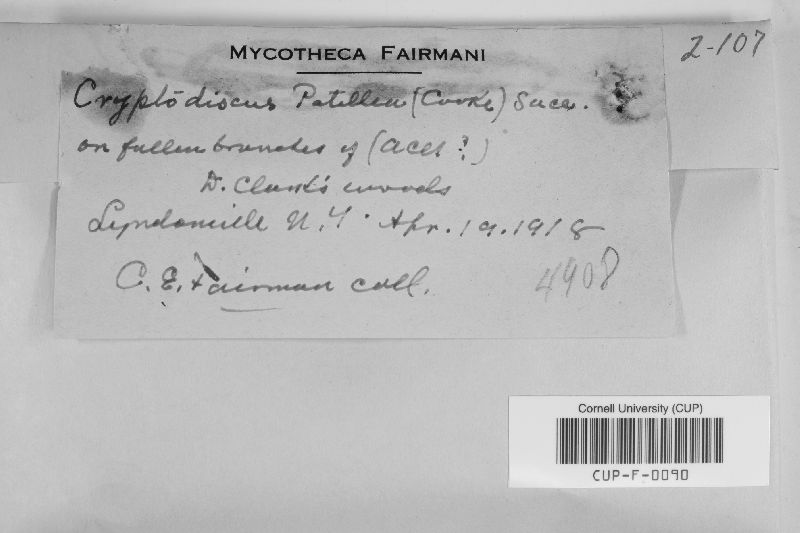 MYCOTHECA FAIRMANI
2-107
Cryptodiscus Patellea (Cooke) Sacc.
on fallen branches of (Acer?)
D. Clark's woods
Lyndonville N.Y. Apr. 19. 1918
C. E. Fairman coll.
4908
Cornell University (CUP)
CUP-F-0090